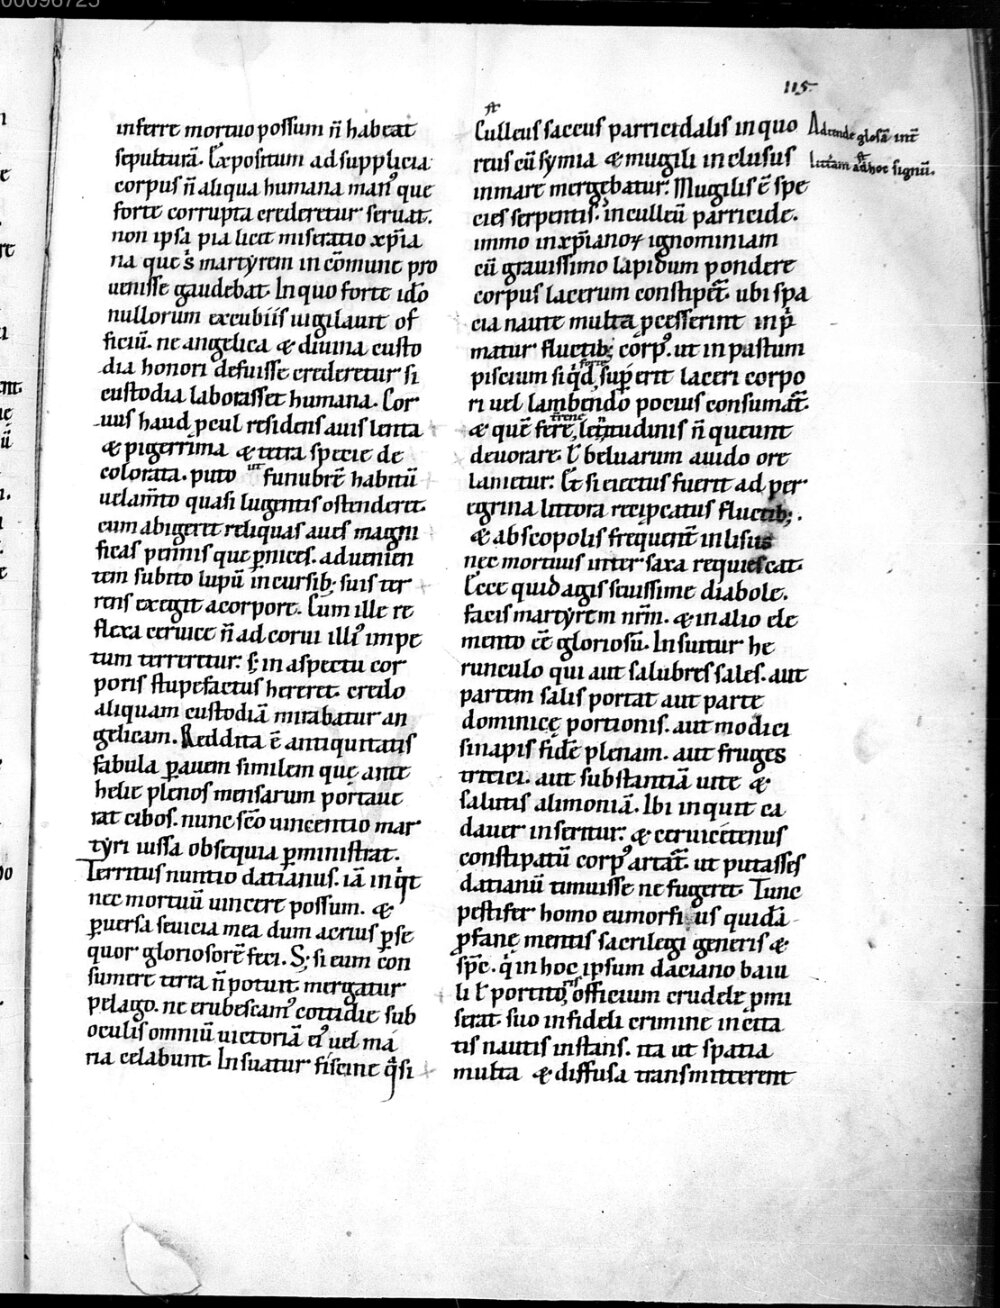 00098725
115
inferre mortuo possum ñ habeat
sepulturā. Expositum ad supplicia
corpus ñ aliqua humana manꝰ que
forte corrupta crederetur seruat.
non ipsa pia licet miseratio xp̄ia
na que martẏrem in cōmune pro
uenisse gaudebat. In quo forte idō
nullorum excubiis uigilauit of
ficiū. ne angelica & diuina custo
dia honori defuisse crederetur si
custodia laborasset humana. Cor
uus haud ꝓcul residens auis lenta
& pigerrima & tetra specie de
colorata. puto ut funubrē habitū
uelam̄to quasi lugentis ostenderet.
cum abigeret reliquas aues magni
ficas pennis que ꝑnices. aduenien
tem subito lupū incursibꝫ suis ter
rens exegit a corpore. Cum ille re
flexa ceruice ñ ad corui illiꝰ impe
tum terreretur: sꝫ in aspectu cor
poris stupefactus hereret. credo
aliquam custodiā mirabatur an
gelicam. Reddita ē antiquitatis
fabula ꝑ auem similem que ante
helie plenos mensarum portaue
rat cibos. nunc sc̄o uincentio mar
tẏri iussa obsequia ꝑministrat.
Territus nuntio datianus. iā inqͥt
nec mortuū uincere possum. &
ꝑuersa seuicia mea dum acrius ꝑse
quor gloriosorē feci. Sꝫ si eum con
sumere terra ñ potuit. mergatur
pelago. ne erubescamꝰ cottidie sub
oculis omniū uictoriā eiꝰ uel ma
ria celabunt. Insuatur fiscine qͣsi
Culleus saccus parricidalis in quo
reus cū sẏmia & mugili inclusus
in mare mergebatur: Mugilis ē spe
cies serpentis. in culleū parricide.
immo in xp̄ianoꝝ ignominiam
cū grauissimo lapidum pondere
corpus lacerum constipet. ubi spa
cia naute multa ꝓcesserint in pͥ
matur fluctibꝫ corpꝰ. ut in pastum
piscium si qͥd superit laceri corpo
ri uel lambendo pocius consumat.
& quē fere lenitudinis ñ queunt
deuorare. ł beluarum auido ore
lanietur: Et si eiectus fuerit ad per
egrina littora recipeatus fluctibꝫ.
& ab scopolis frequent̄ inlisus
nec mortuus inter saxa requiescat.
Ecce quid agis seuissime diabole.
facis martẏrem nr̄m. & in alio ele
mento eē gloriosū. Insuitur he
runculo qui aut salubres sales. aut
partem salis portat aut parte
dominicę portionis. aut modici
sinapis fidē plenam. aut fruges
tritici. aut substantiā uite &
salutis alimoniā. Ibi inquit ca
dauer inseritur: & ceruicetenus
constipatū corpꝰ artat̄. ut putasses
datianū timuisse ne fugeret. Tunc
pestifer homo eumorfi us quidā
ꝓfanę mentis sacrilegi generis &
sp̄c. qͥ in hoc ipsum daciano baiu
li ł portitoris officium crudele ꝓmi
serat. suo infideli crimine incita
tis nautis instans. ita ut spatia
multa & diffusa transmitterent
Adtende glosā int̄
litt̄am ad hoc signū.